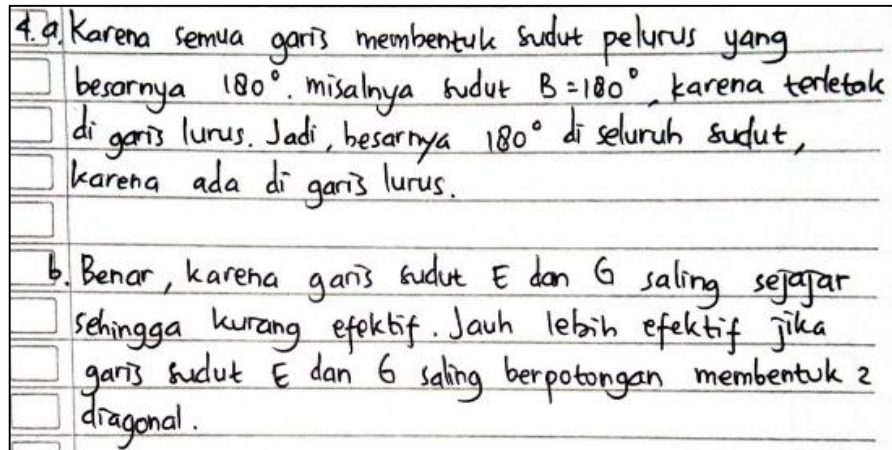 4. a. Karena semua garis membentuk sudut pelurus yang
besarnya 180°. misalnya sudut B = 180°, karena terletak
di garis lurus. Jadi, besarnya 180° di seluruh sudut,
karena ada di garis lurus.
b. Benar, karena garis sudut E dan G saling sejajar
sehingga kurang efektif. Jauh lebih efektif jika
garis sudut E dan G saling berpotongan membentuk 2
diagonal.